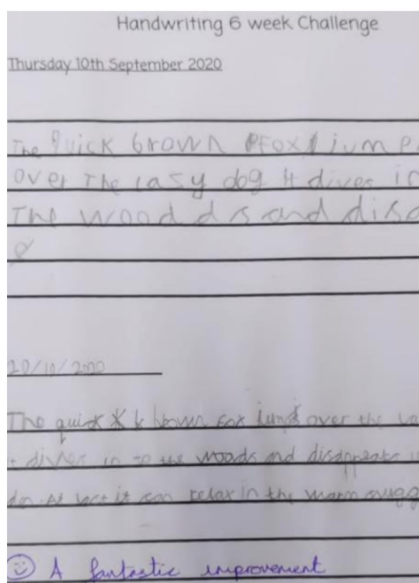 Handwriting 6 week Challenge
Thursday 10th September 2020
The quick brown fox jump
over The lasy dog it dives in
The wood ds and disa
20/10/2020
The quick brown fox over the
dives in to the woods and disappears
At last it can relax in the warm
A fantastic improvement